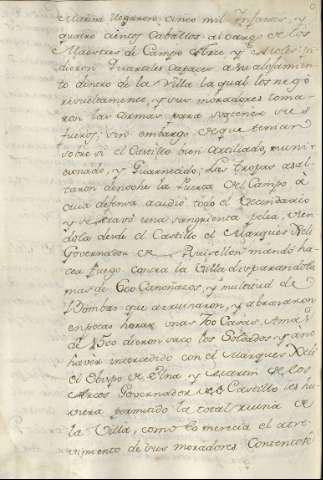 mañana llegaron cinco mil Infantes, y
quatro cientos Caballos al cargo de los
Maestres de Campo Arce y
dieron Quarteles capaces a su alojamiento
dentro de la Villa la qual los negó
resueltamente, y sus moradores toma-
ron las armas para sostener sus
fueros, sin embargo de que tenian
sobre si el Castillo bien Artillado, muni-
cionado, y Guarnecido, Las tropas asal-
taron denoche la Puerta del Campo à
cuia defensa acudió todo el Vecindario
y se travó una sangrienta pelea, vien-
dola desde el Castillo el Marques Xeli
Governador de Ruisellon mandó ha-
cer fuego contra la Villa disparandola
mas de 600 Cañonazos, y multitud de
Bombas que arruinaron, y abrasaron
en pocas horas unas 700 Casas, Ama
al 1500 dieron saco los Soldados y a no
haver intercedido con el Marques Xeli
el Obispo de Elna y Martin de los
Arcos Governador del Castillo les hu-
viera permitido la total ruina de
la Villa, como lo merecia el atre-
vimiento de sus moradores. Contentose